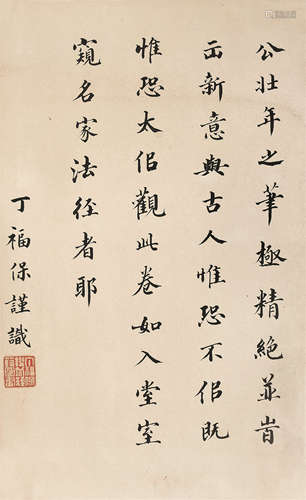 公壯年之筆極精絕並皆
出新意與古人惟恐不侣既
惟恐太侣觀此卷如入堂室
窺名家法徑者耶
丁福保謹識